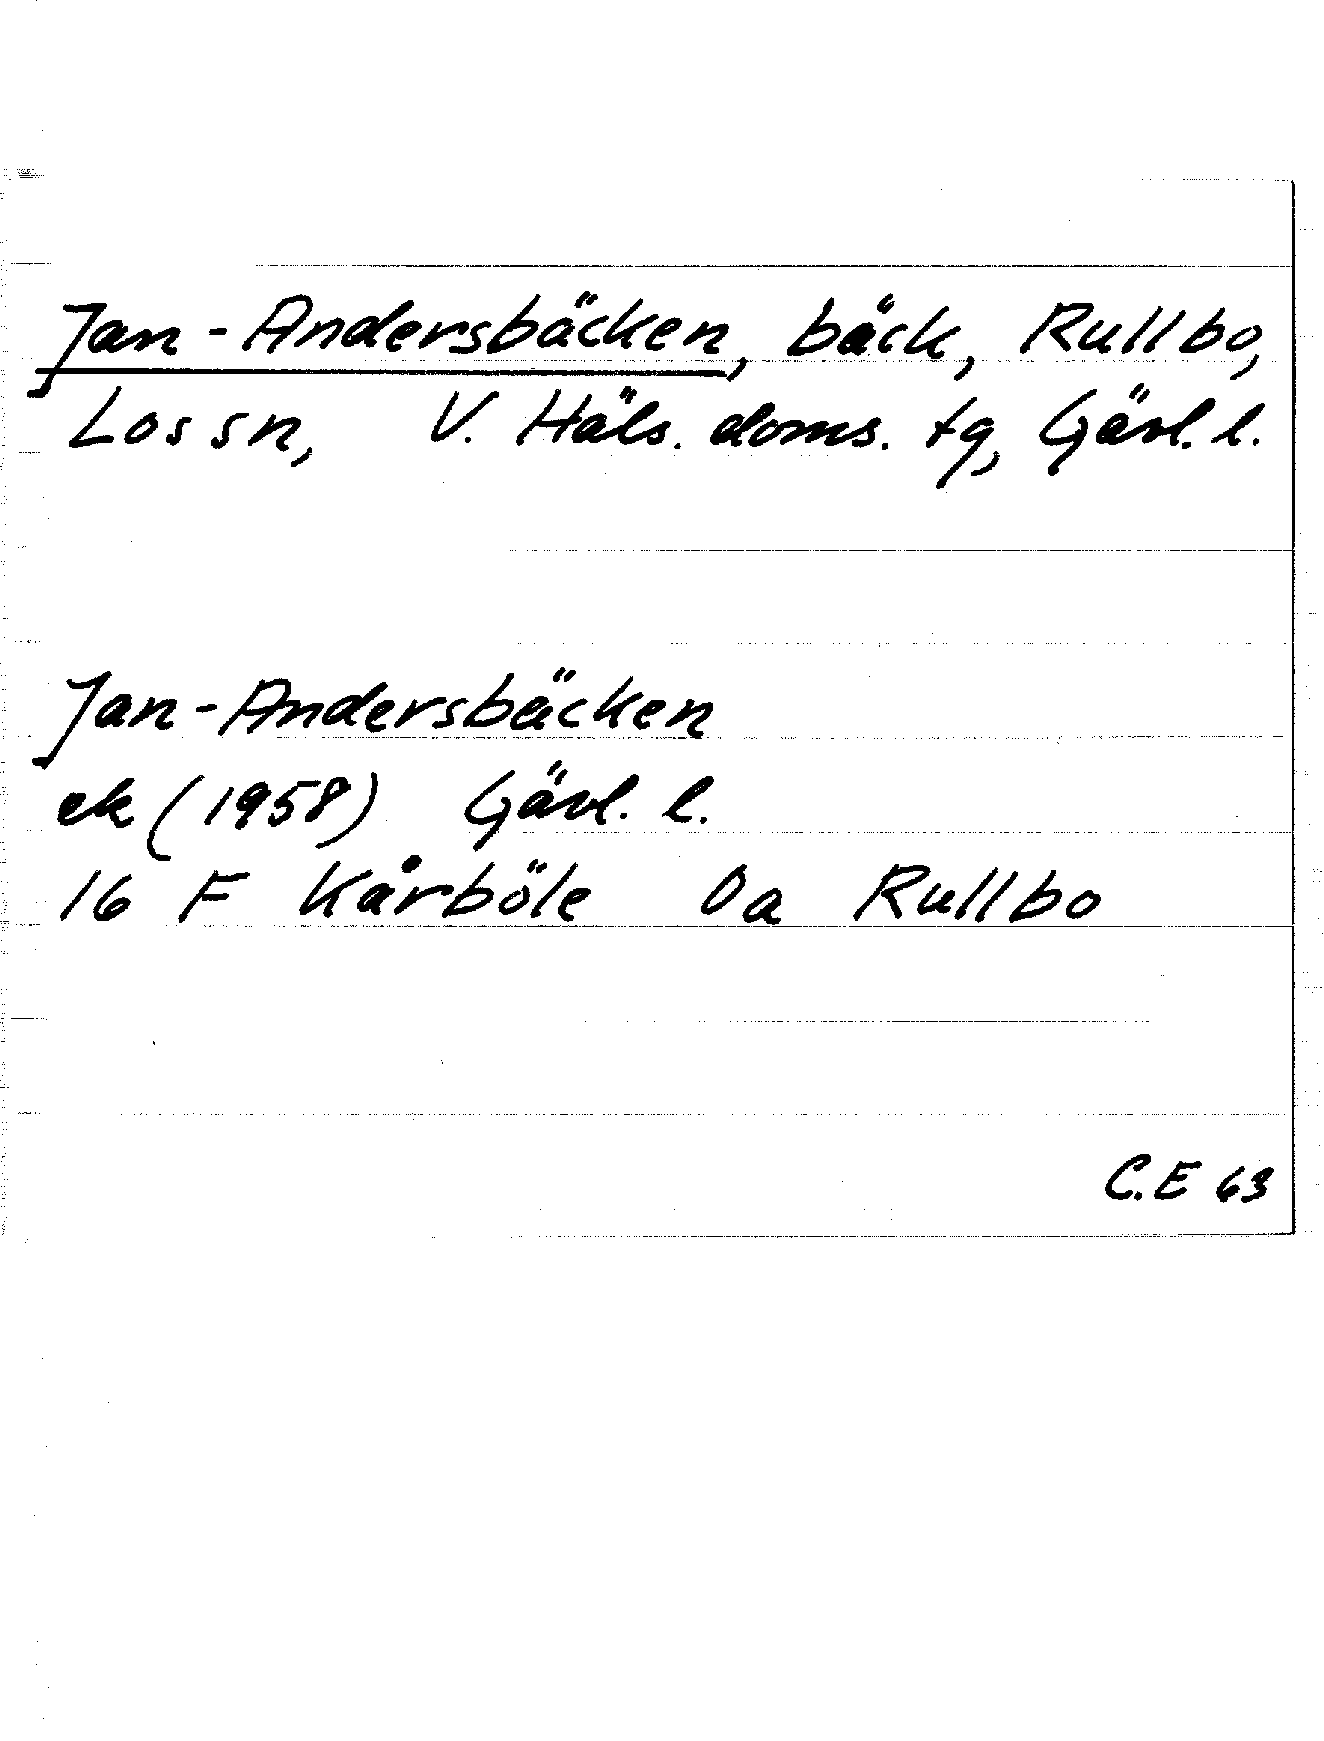 Jan-Andersbäcken, bäck, Rullbo,
Los sn, V. Häls. doms. tg, Gävl. l.
Jan-Andersbäcken
ek (1958) Gävl. l.
16 F Kårböle 0a Rullbo
C.E 63